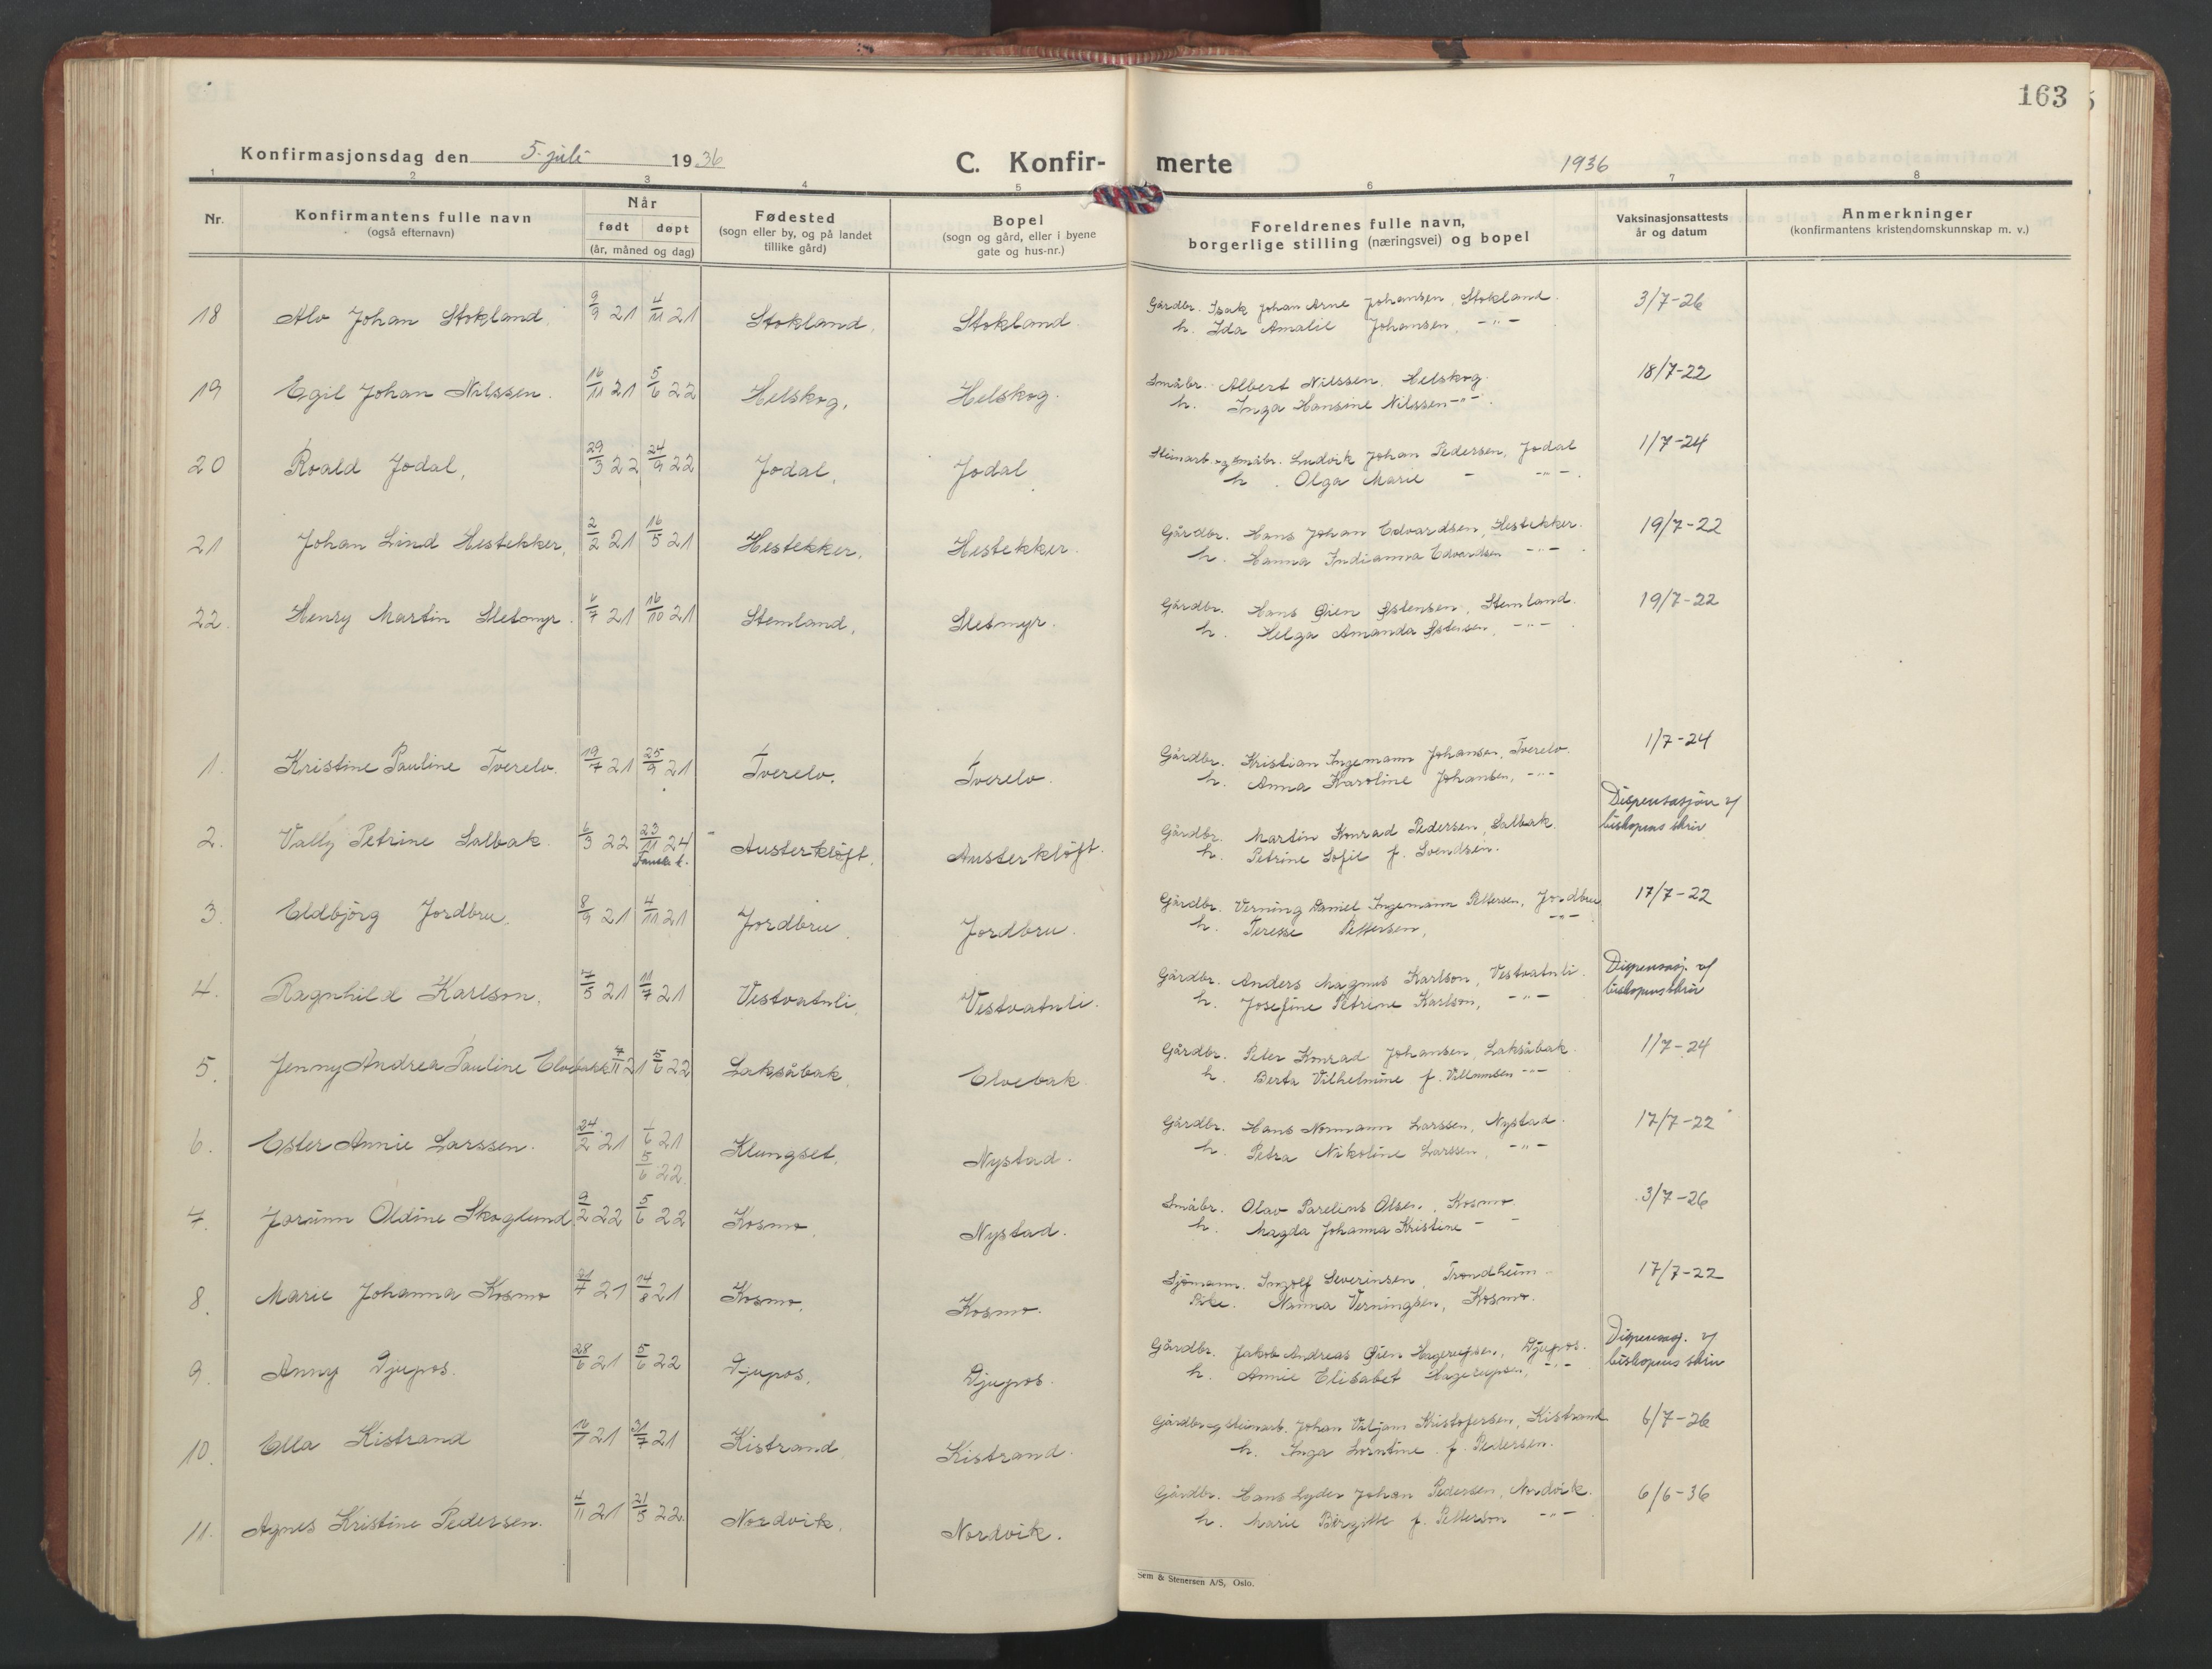 163
Konfirmasjonsdag den 5. juli 1936
C. Konfirmerte 1936
1 2 3 4 5 6 7 8
Nr.
Konfirmantens fulle navn
(også efternavn)
Når
født døpt
(år, måned og dag)
Fødested
(sogn eller by, og på landet
tillike gård)
Bopel
(sogn og gård, eller i byene
gate og hus-nr.)
Foreldrenes fulle navn,
borgerlige stilling (næringsvei) og bopel
Vaksinasjonsattests
år og datum
Anmerkninger
(konfirmantens kristendomskunnskap m. v.)
18 Alv Johan Stokland. 9/9 21 4/11 21 Stokland. Stokland. Gårdbr. Isak Johan Arne Johansen, Stokland. 3/7-26
h. Ida Amalie Johansen, -"-
19 Egil Johan Nilssen. 16/11 21 5/6 22 Helskog. Helskog. Småbr. Albert Nilssen, Helskog. 18/7-22
h. Inga Hansine Nilssen -"-.
20 Roald Jodal. 29/3 22 24/9 22 Jodal. Jodal Steinarb. og småbr. Ludvik Johan Pedersen, Jodal 1/7-24
h. Olga Marie - -"-.
21 Johan Lind Hestekker. 2/2 21 16/5 21 Hestekker. Hestekker. Gårdbr. Hans Johan Edvardsen, Hestekker. 19/7-22
h. Hanna Indianna Edvardsen -"-.
22. Henry Martin Sletmyr. 6/7 21 16/10 21 Stemland. Sletmyr. Gårdbr. Hans Øien Østensen, Stemland. 19/7-22
h. Helga Amanda Østensen, -"-.
1. Kristine Pauline Tverelv. 19/7 21 25/9 21 Tverelv. Tverelv. Gårdbr. Kristian Ingemann Johansen, Tverelv. 1/7-24
h. Anna Karoline Johansen, -"-
2. Vally Petrine Salbak. 6/3 22 23/11 24 Austerkløft. Austerkløft. Gårdbr. Martin Konrad Pedersen, Salbak. Dispensasjon v/
h. Petrine Sofie f. Svendsen. biskopens skriv
3. Eldbjørg Jordbru. 8/9 21 4/11 21 Jordbru. Jordbru. Gårdbr. Verning Daniel Ingemann Pettersen, Jordbru 17/7-22
h. Terese Pettersen, -"-
4. Ragnhild Karlson. 7/5 21 11/7 21 Vestvatnli. Vestvatnli. Gårdbr. Anders Magnus Karlson, Vestvatnli. Dispensasj. v/
h. Josefine Petrine Karlson, -"- biskopens skriv
5. Jenny Andrea Pauline Elvebakk 7/11 21 5/6 22 Laksåbak. Elvebak. Gårdbr. Peter Konrad Johansen, Laksåbak. 1/7-24
h. Berta Vilhelmine f. Villumsen -"-
6. Ester Annie Larssen. 24/2 21 1/6 21 Klungset. Nystad. Gårdbr. Hans Normann Larssen, Nystad. 17/7-22
5/6 22. h. Petra Nikoline Larssen, -"-
7. Jorunn Oldine Skoglund. 9/2 22 5/6 22 Kosmo. Nystad. Småbr. Olav Parelius Olsen, Kosmo. 3/7-26
h. Magda Johanna Kristine - -
8. Marie Johanna Kosmo 21/7 21 14/8 21 Kosmo. Kosmo. Sjømann. Ingolf Severinsen, Trondheim. 17/7-22
Pike. Nanna Verningsen, Kosmo.
9. Anny Djupos. 28/6 21 5/6 22 Djupos. Djupos. Gårdbr. Jakob Andreas Øien Hagerupsen, Djupos. Dispensasj. v/
h. Annie Elisabet Hagerupsen, -"- biskopens skriv
10. Ella Kistrand 21 31/7 21 Kistrand. Kistrand. Gårdbr. og steinarb. Johan Viljam Kristofersen, Kistrand 6/7-26
h. Inga Lorntine f. Pedersen.
11. Agnes Kristine Pedersen. 4/11 21 21/5 22. Nordvik. Nordvik. Gårdbr. Hans Lyder Johan Pedersen, Nordvik. 6/6-36
h. Marie Birgitte f. Petterson -"-
Sem & Stenersen A/S, Oslo.